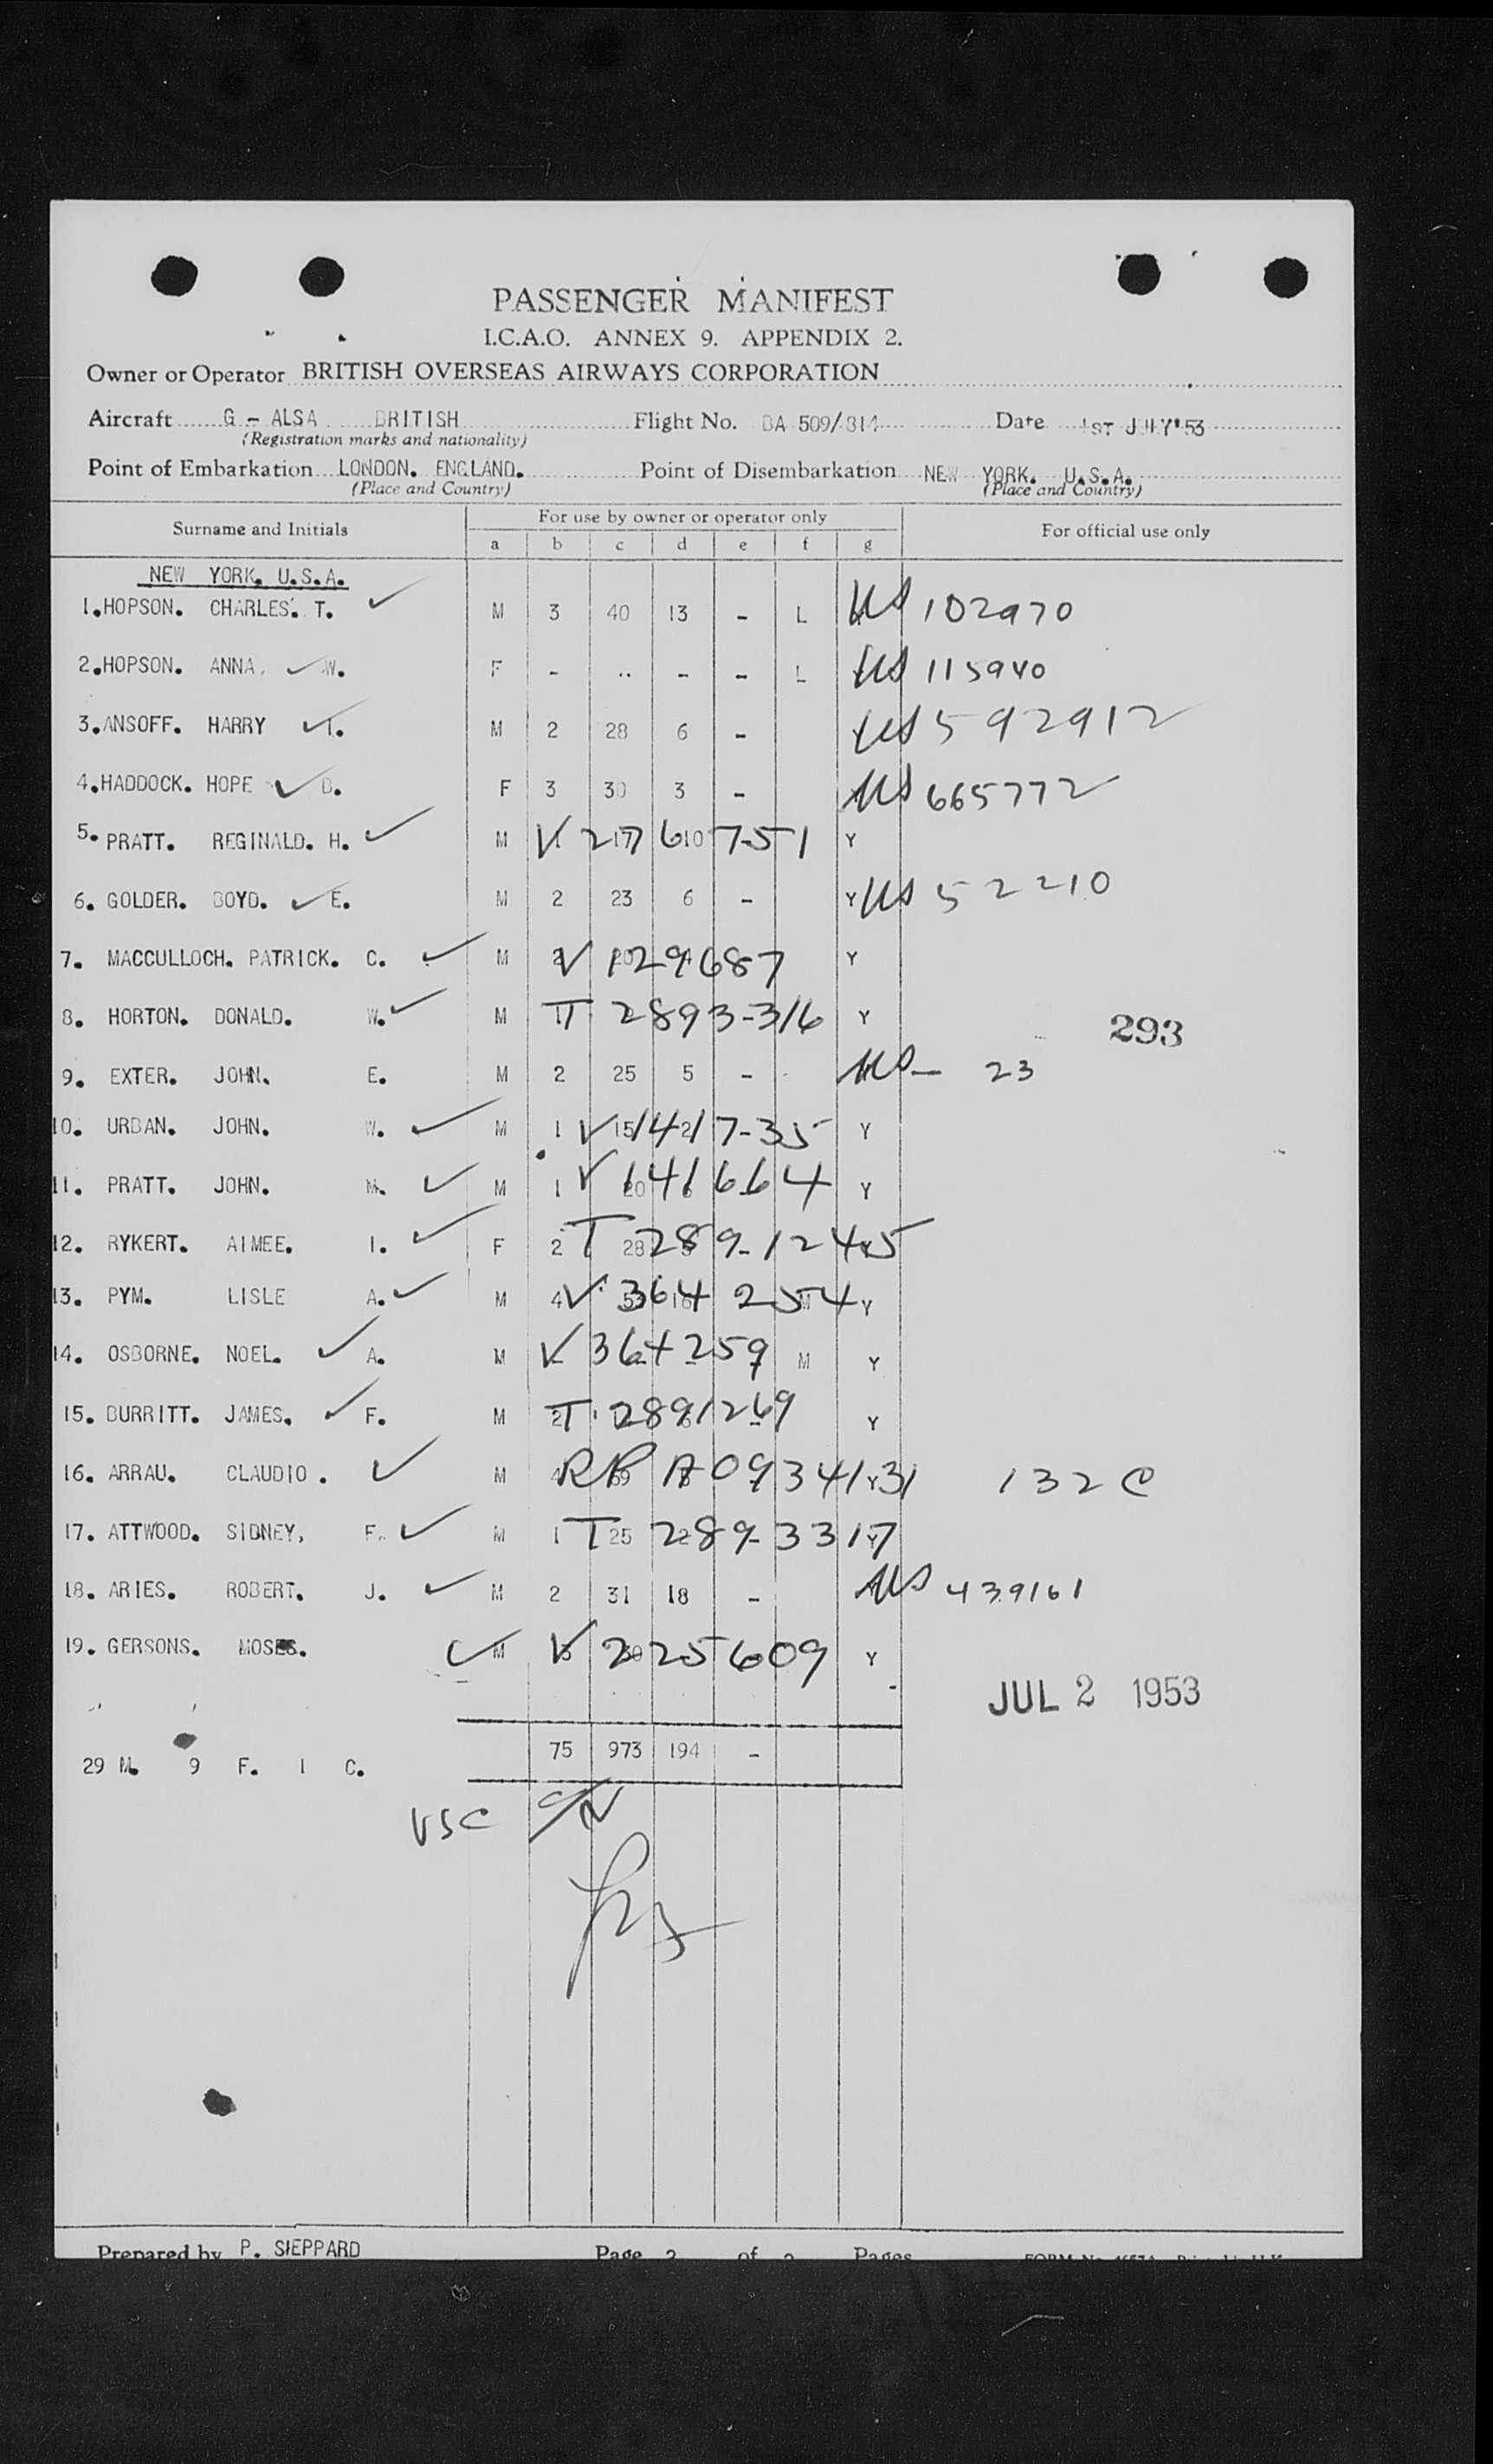 PASSENGER MANIFEST
I.C.A.O. ANNEX 9. APPENDIX 2.
Owner or Operator BRITISH OVERSEAS AIRWAYS CORPORATION
Aircraft G - ALSA BRITISH Flight No. BA 509/814 Date 1ST JULY'53
(Registration marks and nationality)
Point of Embarkation LONDON. ENGLAND. Point of Disembarkation NEW YORK. U.S.A.
(Place and Country) (Place and Country)
Surname and Initials For use by owner or operator only For official use only
a b c d e f g
NEW YORK. U.S.A.
1. HOPSON. CHARLES. T. ✓ M 3 40 13 - L US 102970
2. HOPSON. ANNA. ✓ W. F - .. - - L US 115940
3. ANSOFF. HARRY ✓ I. M 2 28 6 - US 592912
4. HADDOCK. HOPE ✓ D. F 3 30 3 - US 665772
5. PRATT. REGINALD. H. ✓ M V 2176751 Y
6. GOLDER. BOYD. ✓ E. M 2 23 6 - Y US 52210
7. MACCULLOCH. PATRICK. C. ✓ M V 129687 Y
8. HORTON. DONALD. W. ✓ M T 2893-316 Y
9. EXTER. JOHN. E. M 2 25 5 - US - 23
293
10. URBAN. JOHN. W. ✓ M 1 V 1417-35 Y
11. PRATT. JOHN. M. ✓ M 1 V 141664 Y
12. RYKERT. AIMEE. I. ✓ F 2 T 289-1245
13. PYM. LISLE A. ✓ M 4 V 364254 Y
14. OSBORNE. NOEL. ✓ A. M V 364259 M Y
15. BURRITT. JAMES. ✓ F. M 2 T 2891269 Y
16. ARRAU. CLAUDIO. ✓ M RP A0934131 Y 132 C
17. ATTWOOD. SIDNEY, F. ✓ M 1 T 25 289-3317 Y
18. ARIES. ROBERT. J. ✓ M 2 31 18 - US 439161
19. GERSONS. MOSES. ✓ M V 225609 Y
JUL 2 1953
75 973 194 -
29 M. 9 F. 1 C.
VSC
Prepared by P. SIEPPARD Page 2 of 2 Pages